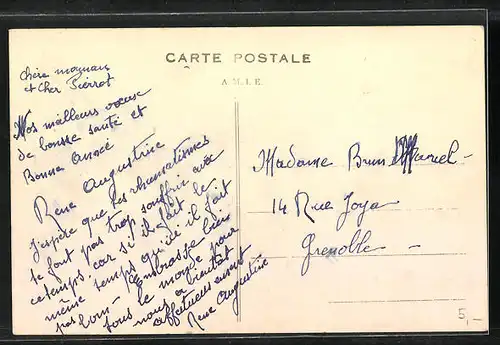 CARTE POSTALE
A.M.I.E.
Chère
et Cher Pierrot
Nos meilleurs voeux
de bonne santé et
Bonne année
Rene Augustine
J'espère que tes rhumatismes
te font pas trop souffrir avec
ce temps car si il fait le
même temps qu'ici il fait
pas bon - Embrasse bien
tous le monde pour
nous a bientôt
affectueusement
Rene Augustine
Madame Brun Marcel -
14 Rue Joya
Grenoble -
5,-